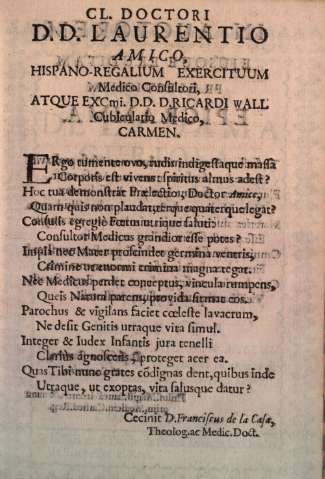 CL. DOCTORI
D.D. LAURENTIO
AMICO,
HISPANO-REGALIUM EXERCITUUM
Medico Consultori,
ATQUE EXCmi. D.D. D. RICARDI WALL
Cubiculario Medico,
CARMEN.
ERgo tumente ovo, rudis indigestaque massa
Corporis est vivens: spiritus almus adest?
Hoc tua demonstrat Prælectio, Doctor Amice,
Quam quis non plaudat, terque quaterque legat?
Consulis egregiè Fœtus utrique saluti:
Consultor Medicus grandior esse potes?
Inspia nec Mater proscindet germina veneris,
Crimine ut enormi crimina magna tegat.
Nec Medicus perdet conceptus, vincula rumpens,
Queis Natura parens, provida firmat eos.
Parochus & vigilans faciet cœleste lavacrum,
Ne desit Genitis utraque vita simul.
Integer & Iudex Infantis jura tenelli
Clariùs agnoscens, proteget acer ea.
Quas Tibi nunc grates cōdignas dent, quibus inde
Utraque, ut exoptas, vita salusque datur?
Cecinit D. Franciscus de la Casa,
Theolog. ac Medic. Doct.